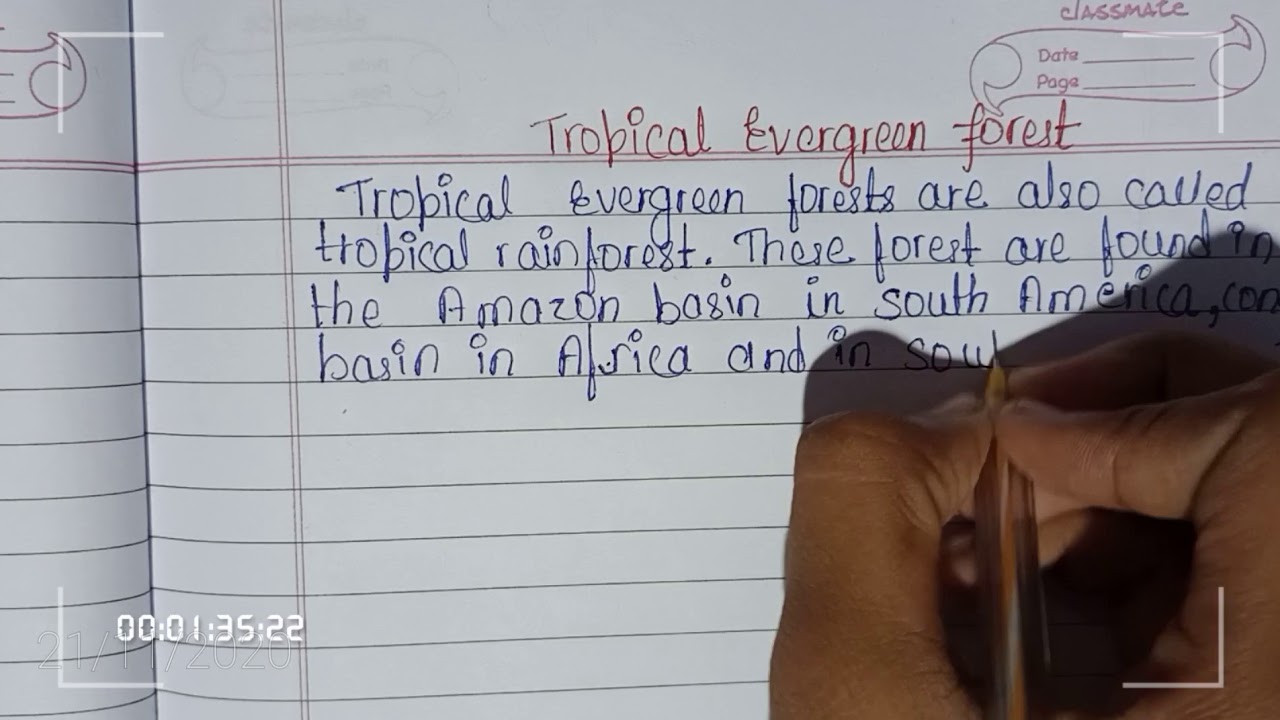 classmate
Date
Page
Tropical Evergreen forest
Tropical Evergreen forests are also called
tropical rainforest. These forest are found in
the Amazon basin in south America, con
basin in Africa and in sou
00:01:35:22
21/11/2020